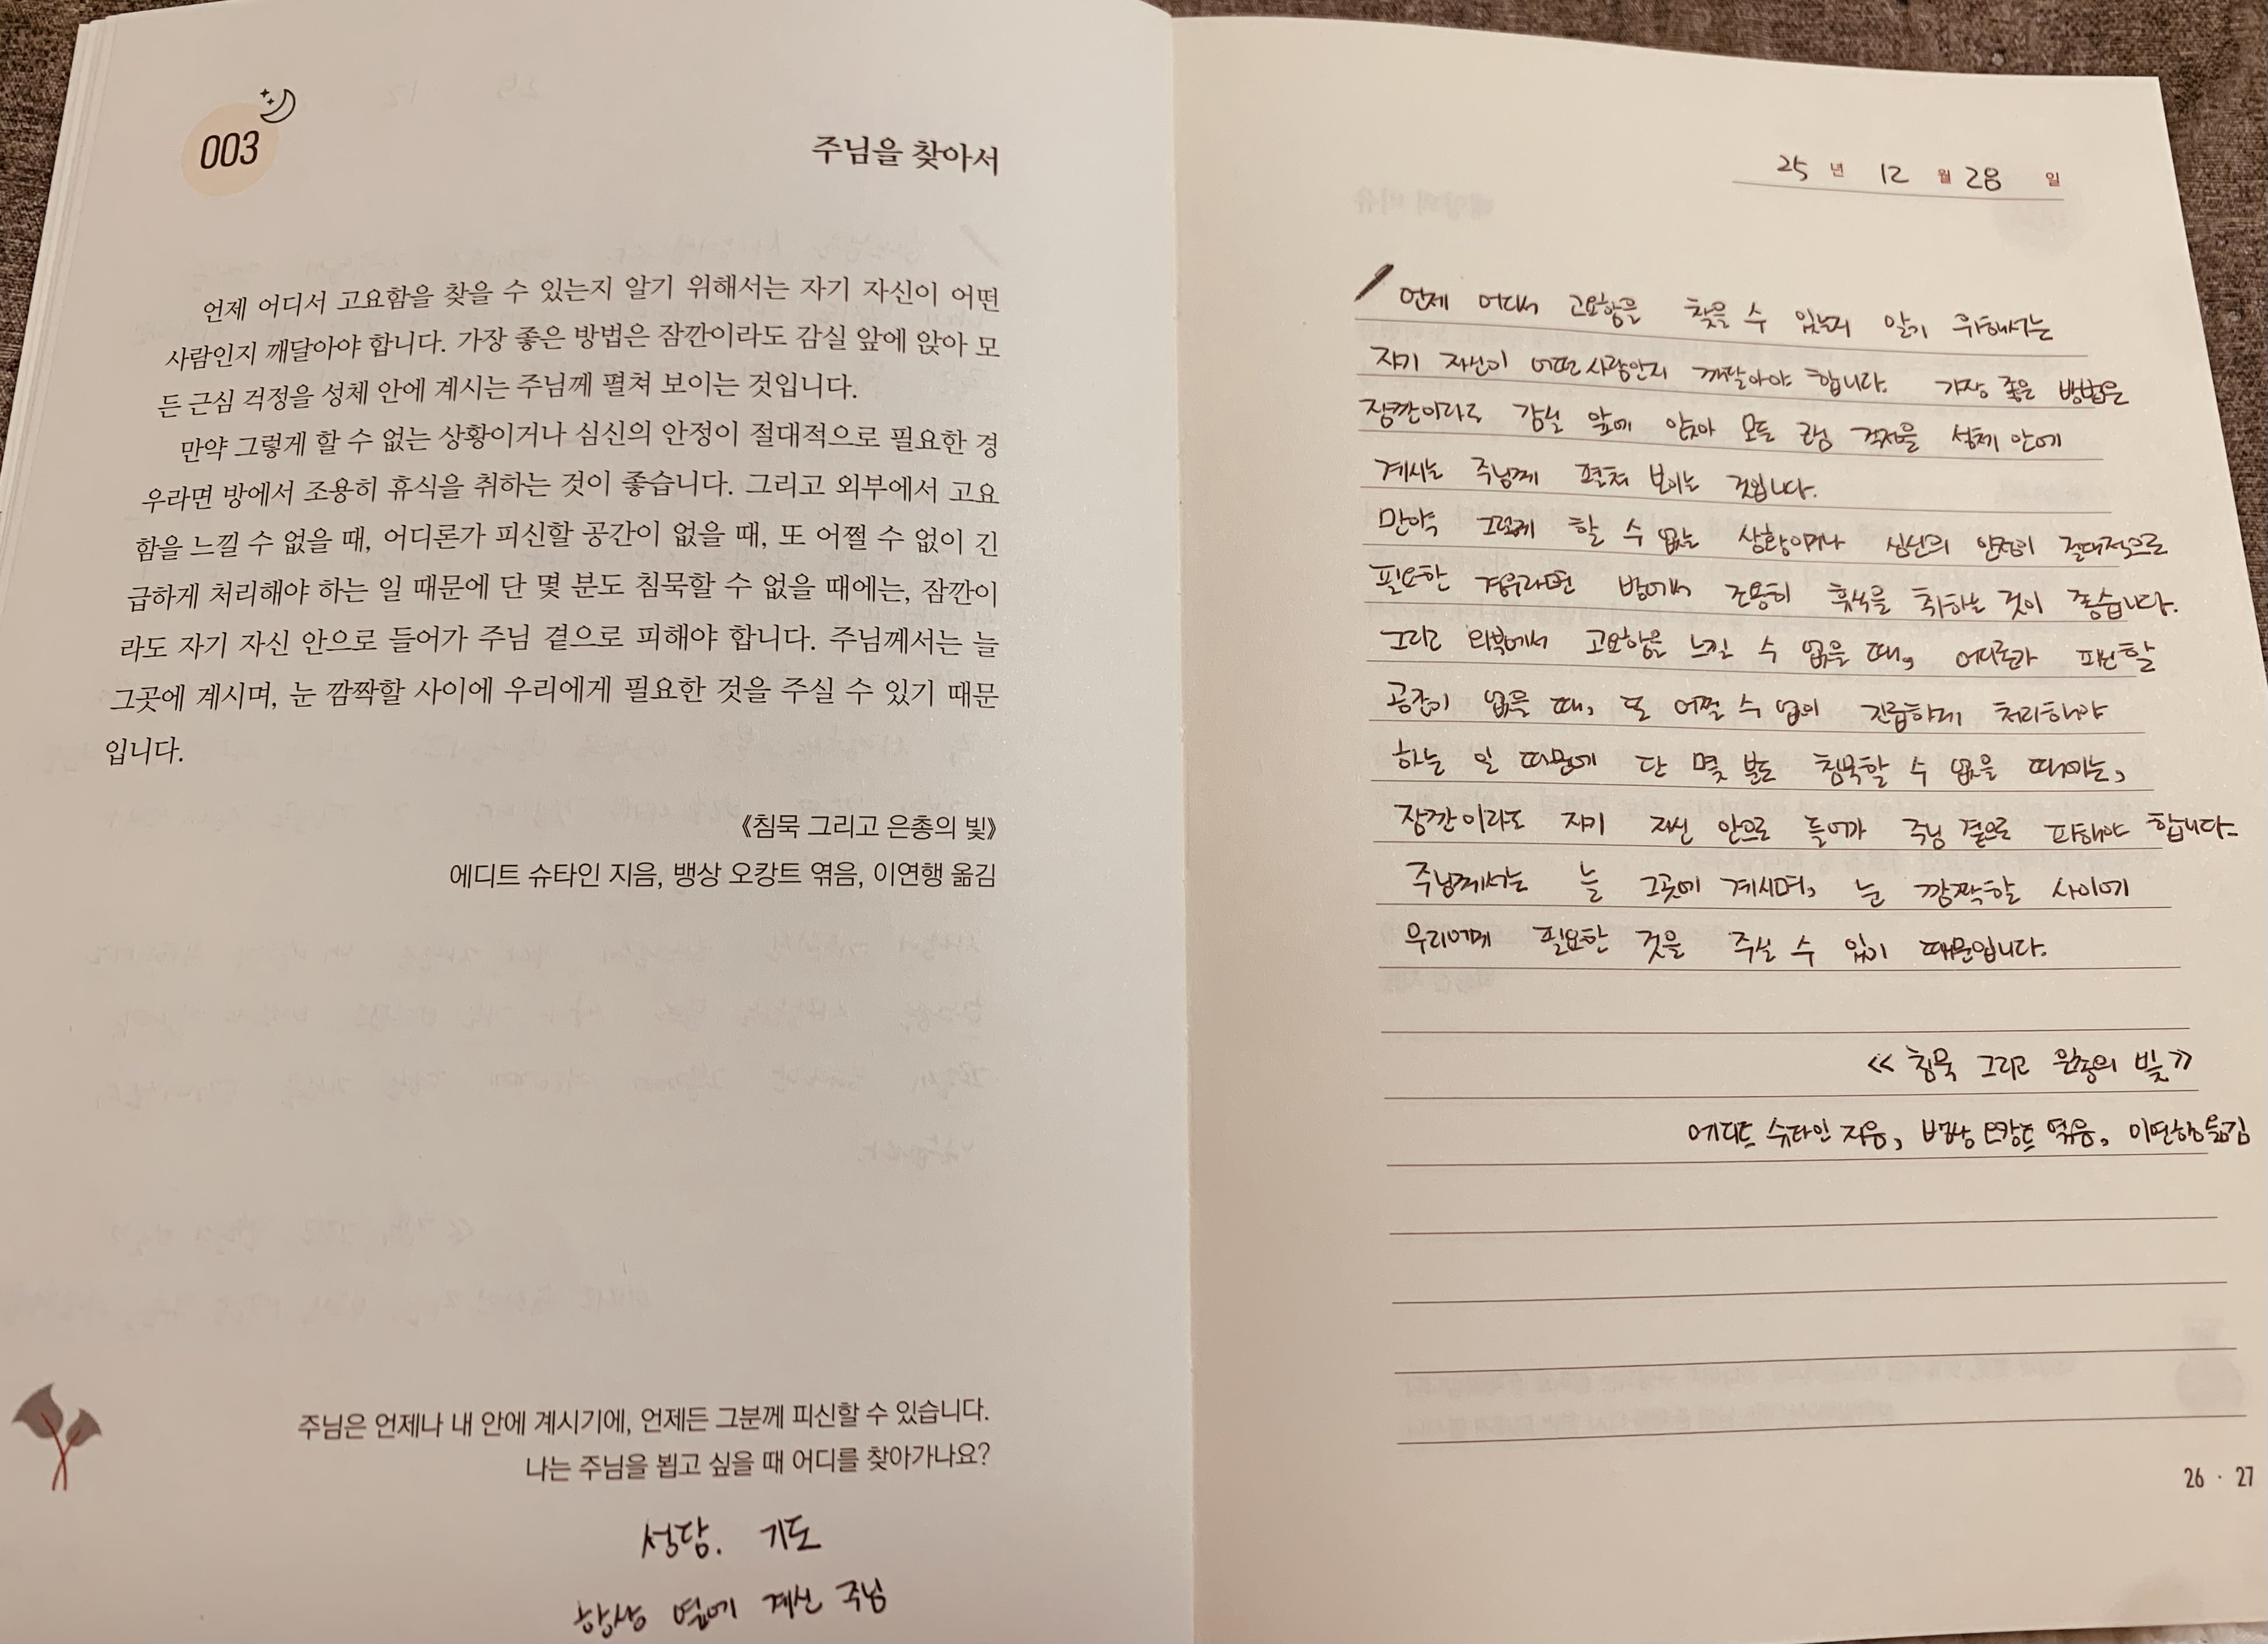 003
주님을 찾아서
언제 어디서 고요함을 찾을 수 있는지 알기 위해서는 자기 자신이 어떤
사람인지 깨달아야 합니다. 가장 좋은 방법은 잠깐이라도 감실 앞에 앉아 모
든 근심 걱정을 성체 안에 계시는 주님께 펼쳐 보이는 것입니다.
만약 그렇게 할 수 없는 상황이거나 심신의 안정이 절대적으로 필요한 경
우라면 방에서 조용히 휴식을 취하는 것이 좋습니다. 그리고 외부에서 고요
함을 느낄 수 없을 때, 어디론가 피신할 공간이 없을 때, 또 어쩔 수 없이 긴
급하게 처리해야 하는 일 때문에 단 몇 분도 침묵할 수 없을 때에는, 잠깐이
라도 자기 자신 안으로 들어가 주님 곁으로 피해야 합니다. 주님께서는 늘
그곳에 계시며, 눈 깜짝할 사이에 우리에게 필요한 것을 주실 수 있기 때문
입니다.
《침묵 그리고 은총의 빛》
에디트 슈타인 지음, 뱅상 오캉트 엮음, 이연행 옮김
주님은 언제나 내 안에 계시기에, 언제든 그분께 피신할 수 있습니다.
나는 주님을 뵙고 싶을 때 어디를 찾아가나요?
성당. 기도
항상 옆에 계신 주님
25 년 12 월 28 일
언제 어디서 고요함을 찾을 수 있는지 알기 위해서는
자기 자신이 어떤 사람인지 깨달아야 합니다. 가장 좋은 방법은
잠깐이라도 감실 앞에 앉아 모든 근심 걱정을 성체 안에
계시는 주님께 펼쳐 보이는 것입니다.
만약 그렇게 할 수 없는 상황이거나 심신의 안정이 절대적으로
필요한 경우라면 방에서 조용히 휴식을 취하는 것이 좋습니다.
그리고 외부에서 고요함을 느낄 수 없을 때, 어디론가 피신할
공간이 없을 때, 또 어쩔 수 없이 긴급하게 처리해야
하는 일 때문에 단 몇 분도 침묵할 수 없을 때에는,
잠깐이라도 자기 자신 안으로 들어가 주님 곁으로 피해야 합니다.
주님께서는 늘 그곳에 계시며, 눈 깜짝할 사이에
우리에게 필요한 것을 주실 수 있기 때문입니다.
《침묵 그리고 은총의 빛》
에디트 슈타인 지음, 뱅상 오캉트 엮음, 이연행 옮김
26 · 27